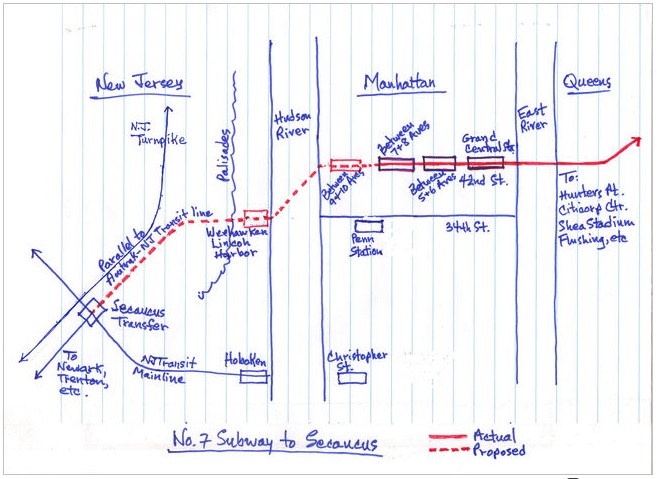 New Jersey
Manhattan
Queens
N.J.
Turnpike
Palisades
Hudson
River
East
River
Between
7+8 Aves
Between
5+6 Aves
Grand
Central St.
42nd St.
Between
9+10 Aves
To:
Hunters Pt.
Citicorp Ctr.
Shea Stadium
Flushing, etc
Parallel to
Amtrak-NJ Transit line
Weehawken
Lincoln
Harbor
34th St.
Penn
Station
Secaucus
Transfer
To
Newark,
Trenton,
etc.
NJ Transit
Mainline
Hoboken
Christopher
St.
No. 7 Subway to Secaucus
Actual
Proposed